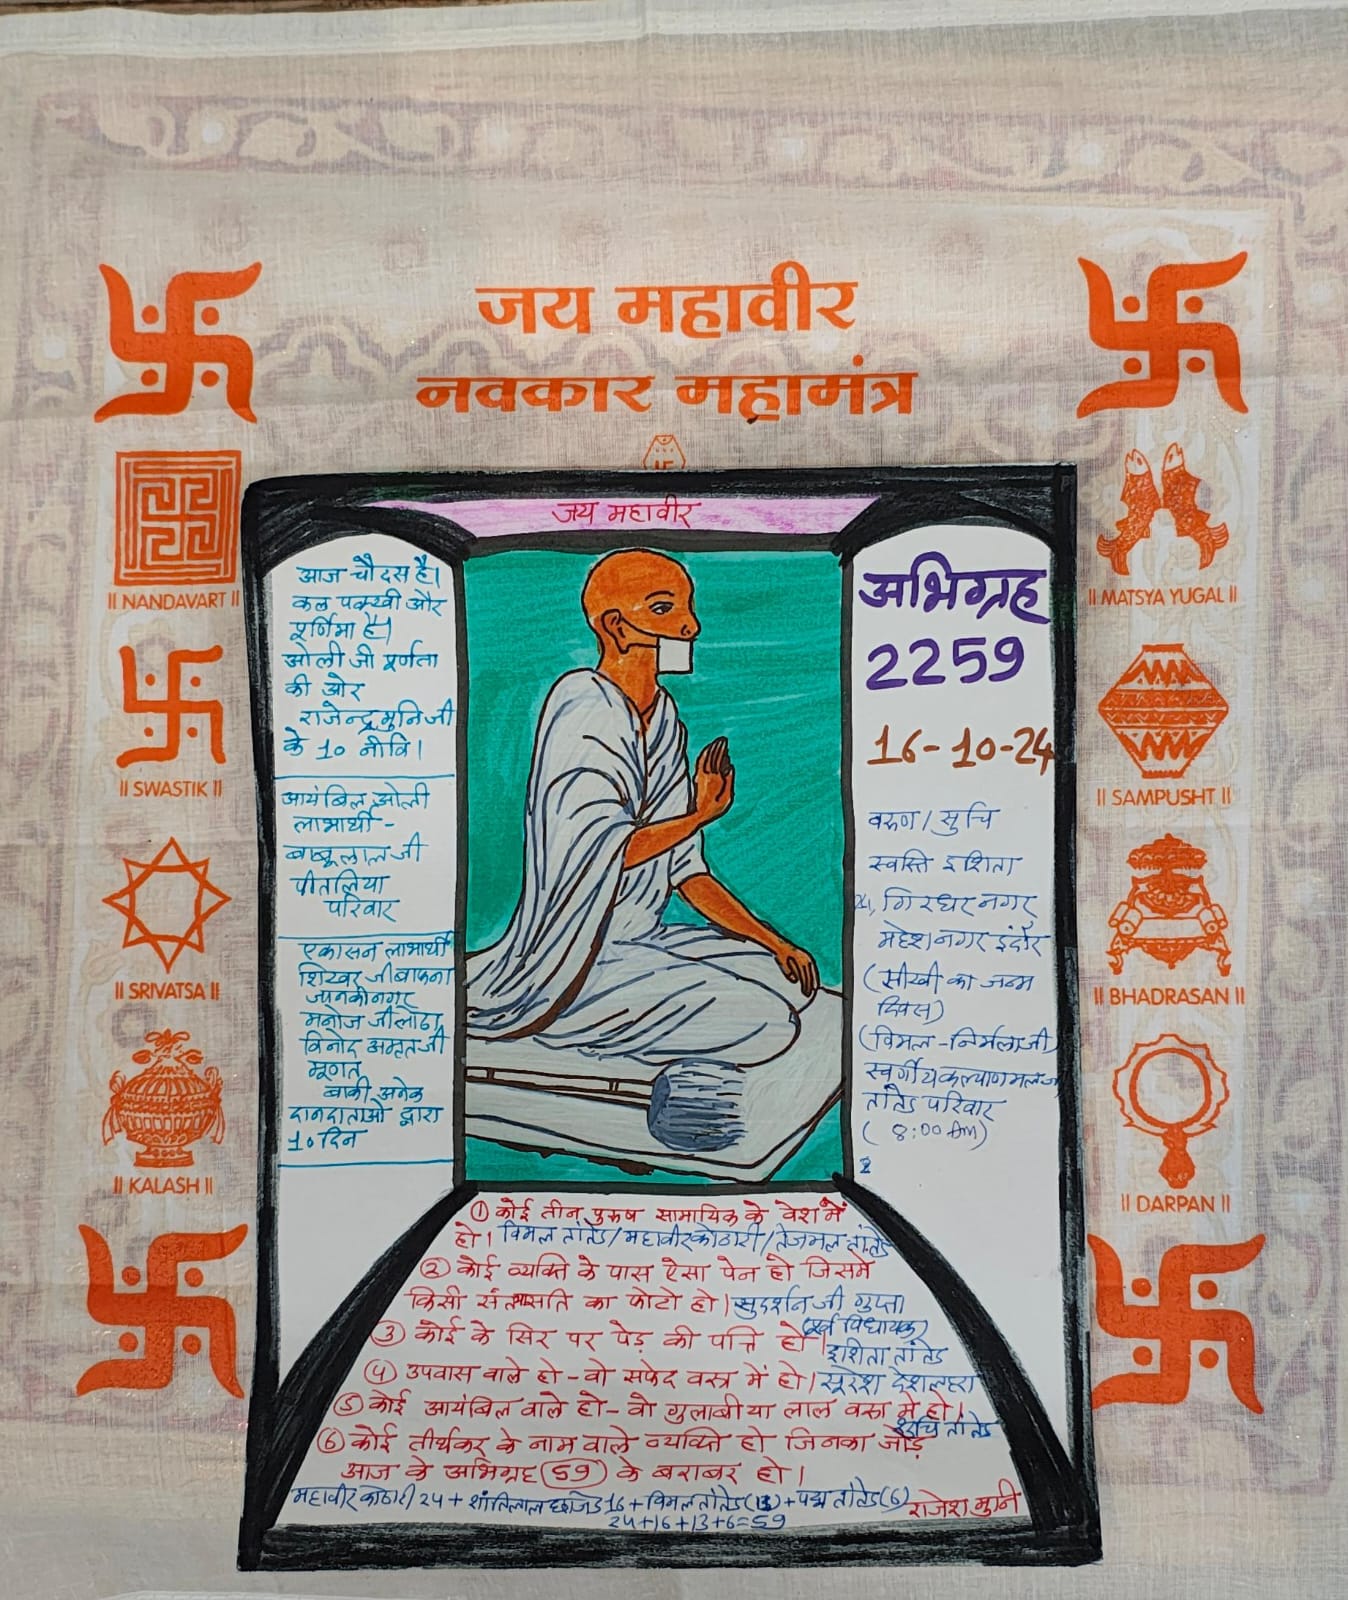 जय महावीर
नवकार महामंत्र
|| NANDAVART ||
|| SWASTIK ||
|| SRIVATSA ||
|| KALASH ||
|| MATSYA YUGAL ||
|| SAMPUSHT ||
|| BHADRASAN ||
|| DARPAN ||
जय महावीर
आज चौदस है।
कल पक्खी और
पूर्णिमा है।
ओली जी पूर्णता
की ओर
राजेन्द्र मुनि जी
के 10 नीवि।
आयंबिल ओली
लाभार्थी -
बाबूलाल जी
पीतलिया
परिवार
एकासन लाभार्थी
शिखर जी बाफना
जानकीनगर
मनोज जी लोढा
विनोद अमृत जी
मूणत
बाकी अनेक
दानदाताओ द्वारा
10 दिन
अभिग्रह
2259
16-10-24
वरुण / सुचि
स्वस्ति इशिता
24, गिरधर नगर
महेश नगर इंदौर
(सीखी का जन्म
दिवस)
(विमल - निर्मला जी)
स्वर्गीय कल्याणमल जी
तांतेड परिवार
( 8:00 Am)
2
① कोई तीन पुरुष सामायिक के वेश में
हो। विमल तांतेड / महावीर कोठारी / तेजमल तांतेड
② कोई व्यक्ति के पास ऐसा पेन हो जिसमे
किसी संत सति का फोटो हो। सुदर्शन जी गुप्ता
पूर्व विधायक
③ कोई के सिर पर पेड़ की पत्ति हो। इशिता तांतेड
④ उपवास वाले हो - वो सफेद वस्त्र में हो। सूरेश देशलहरा
⑤ कोई आयंबिल वाले हो - वो गुलाबी या लाल वस्त्र मे हो।
सुचि तांतेड
⑥ कोई तीर्थकर के नाम वाले व्यक्ति हो जिनका जोड़
आज के अभिग्रह (59) के बराबर हो।
महावीर कोठारी 24 + शांतिलाल छाजेड 16 + विमल तांतेड (13) + पद्म तांतेड (6)
24+16+13+6=59
राजेश मुनि